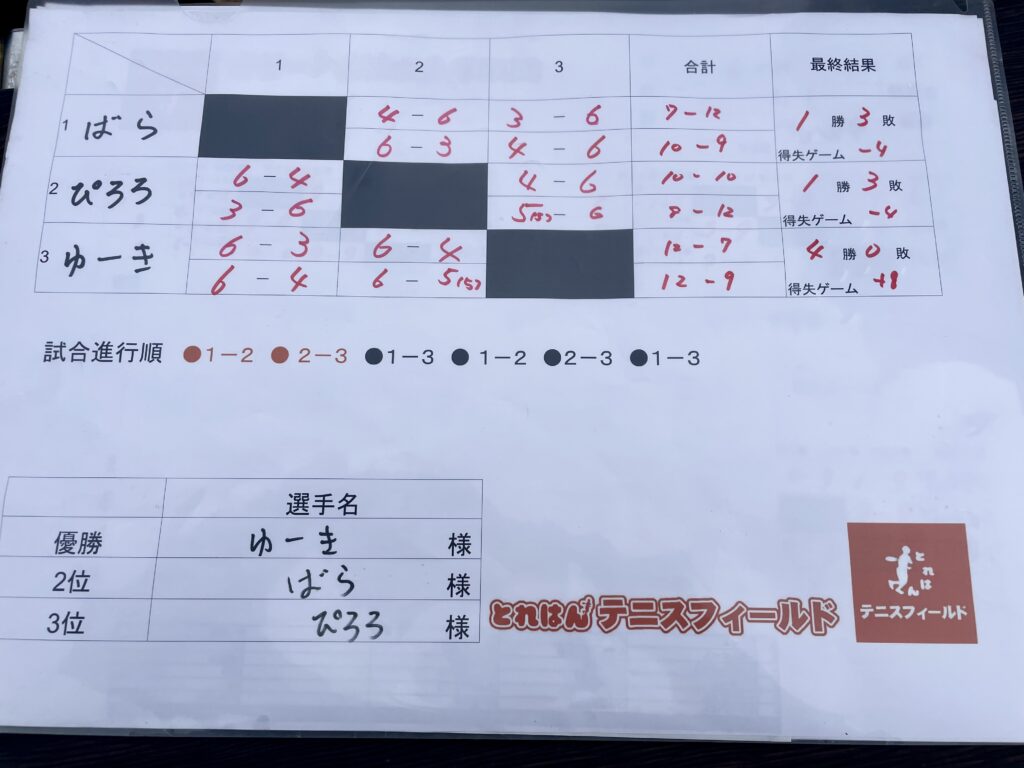 1 2 3 合計 最終結果
1 ばら 4 - 6 3 - 6 7-12 1 勝 3 敗
6 - 3 4 - 6 10 - 9 得失ゲーム -4
2 ぴろろ 6 - 4 4 - 6 10-10 1 勝 3 敗
3 - 6 - 6 - 12 得失ゲーム -4
3 ゆーき 6 - 3 6 - 4 12-7 4 勝 0 敗
6 - 4 6 - 12 -9 得失ゲーム +8
試合進行順 ●1-2 ●2-3 ●1-3 ●1-2 ●2-3 ●1-3
選手名
優勝 ゆーき 様
2位 ばら 様
3位 ぴろろ 様
とれはん テニスフィールド
とれはん
テニスフィールド